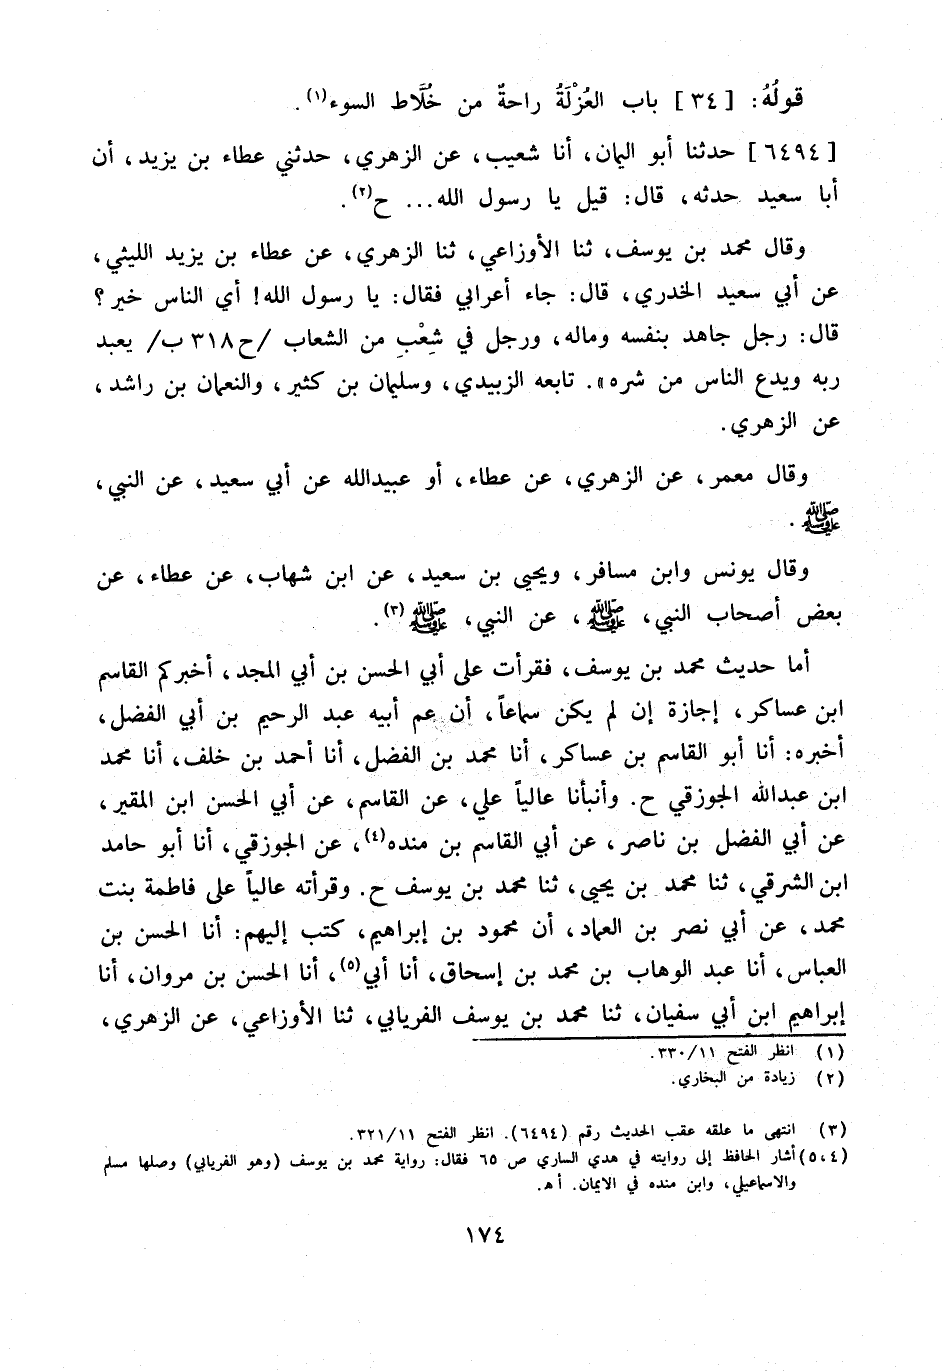 قولُهُ: [٣٤] باب العُزْلَةُ راحةٌ من خُلَّاط السوء(١).
[٦٤٩٤] حدثنا أبو اليمان، أنا شعيب، عن الزهري، حدثني عطاء بن يزيد، أن
أبا سعيد حدثه، قال: قيل يا رسول الله... ح(٢).
وقال محمد بن يوسف، ثنا الأوزاعي، ثنا الزهري، عن عطاء بن يزيد الليثي،
عن أبي سعيد الخدري، قال: جاء أعرابي فقال: يا رسول الله! أي الناس خير؟
قال: رجل جاهد بنفسه وماله، ورجل في شِعْبٍ من الشعاب /ح٣١٨ب/ يعبد
ربه ويدع الناس من شره». تابعه الزبيدي، وسليمان بن كثير، والنعمان بن راشد،
عن الزهري.
وقال معمر، عن الزهري، عن عطاء، أو عبيدالله عن أبي سعيد، عن النبي،
ﷺ.
وقال يونس وابن مسافر، ويحيى بن سعيد، عن ابن شهاب، عن عطاء، عن
بعض أصحاب النبي، ﷺ، عن النبي، ﷺ(٣).
أما حديث محمد بن يوسف، فقرأت على أبي الحسن بن أبي المجد، أخبركم القاسم
ابن عساكر، إجازة إن لم يكن سماعاً، أن عم أبيه عبد الرحيم بن أبي الفضل،
أخبره: أنا أبو القاسم بن عساكر، أنا محمد بن الفضل، أنا أحمد بن خلف، أنا محمد
ابن عبدالله الجوزقي ح. وأنبأنا عالياً علي، عن القاسم، عن أبي الحسن ابن المقير،
عن أبي الفضل بن ناصر، عن أبي القاسم بن منده(٤)، عن الجوزقي، أنا أبو حامد
ابن الشرقي، ثنا محمد بن يحيى، ثنا محمد بن يوسف ح. وقرأته عالياً على فاطمة بنت
محمد، عن أبي نصر بن العماد، أن محمود بن إبراهيم، كتب إليهم: أنا الحسن بن
العباس، أنا عبد الوهاب بن محمد بن إسحاق، أنا أبي(٥)، أنا الحسن بن مروان، أنا
إبراهيم ابن أبي سفيان، ثنا محمد بن يوسف الفريابي، ثنا الأوزاعي، عن الزهري،
(١) انظر الفتح ٣٣٠/١١.
(٢) زيادة من البخاري.
(٣) انتهى ما علقه عقب الحديث رقم (٦٤٩٤). انظر الفتح ٣٢١/١١.
(٥،٤) أشار الحافظ إلى روايته في هدي الساري ص ٦٥ فقال: رواية محمد بن يوسف (وهو الفريابي) وصلها مسلم
والاسماعيلي، وابن منده في الايمان. أ هـ.
١٧٤